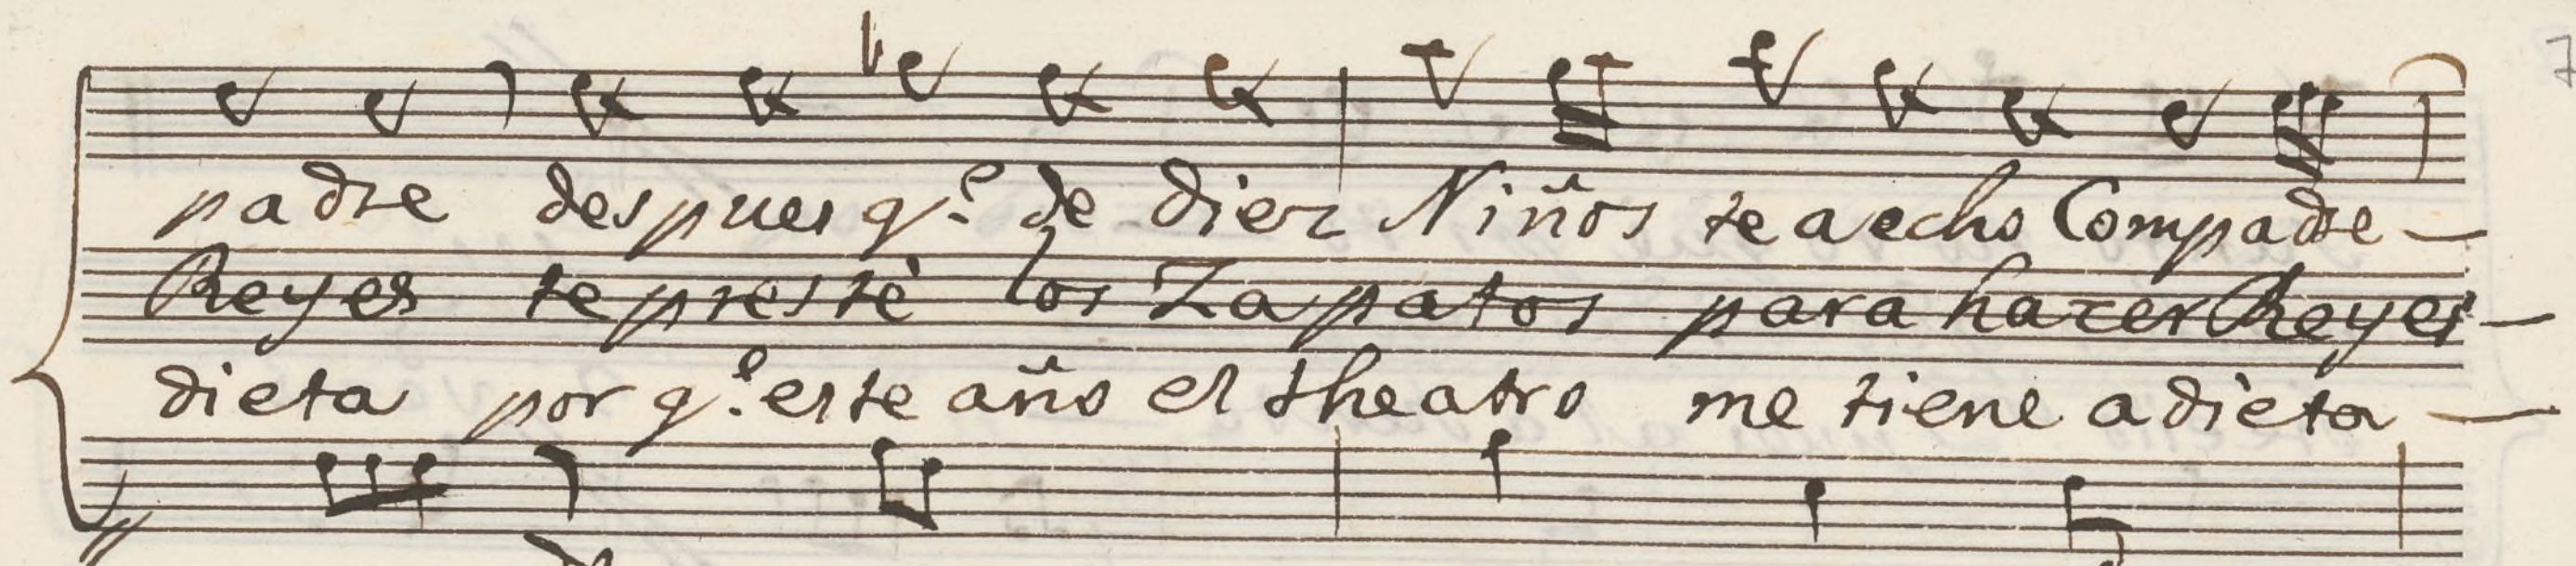 7
padre despues q.e de diez Niños te a echo Compadre -
Reyes te prestè los Zapatos para hazer Reyes -
dieta por q.e este año el theatro me tiene a dieta -